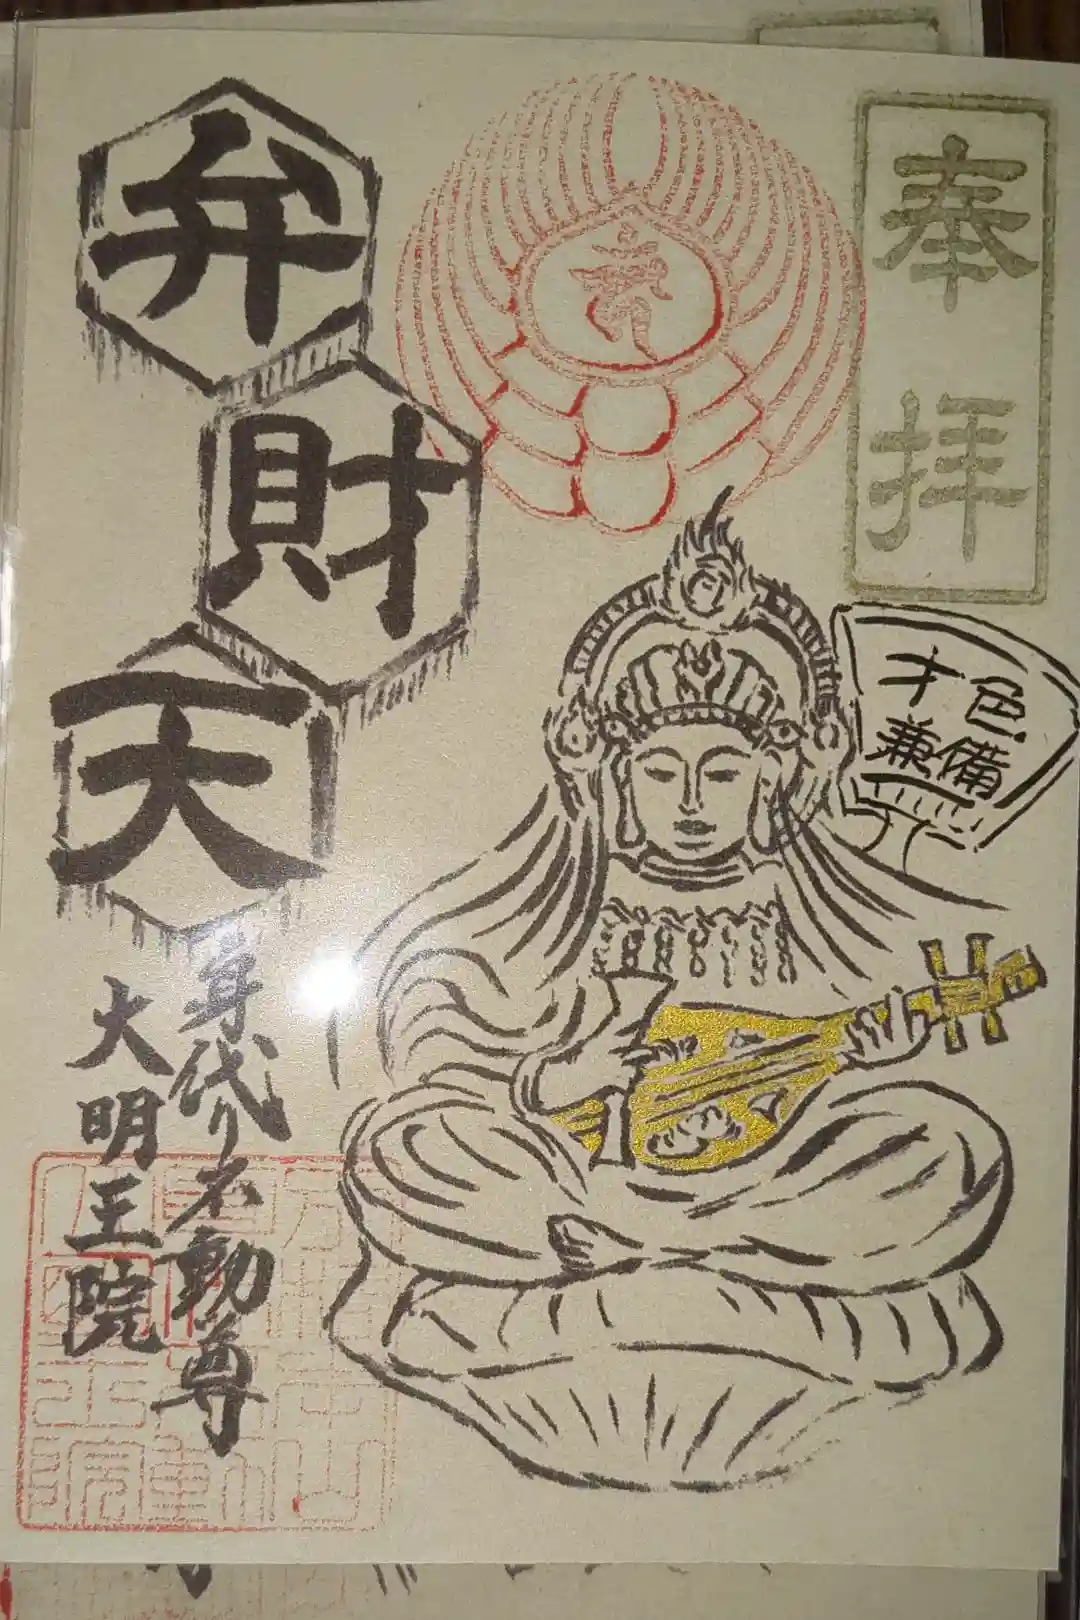 奉拝
色備
才兼
弁財天
身代り不動尊
大明王院